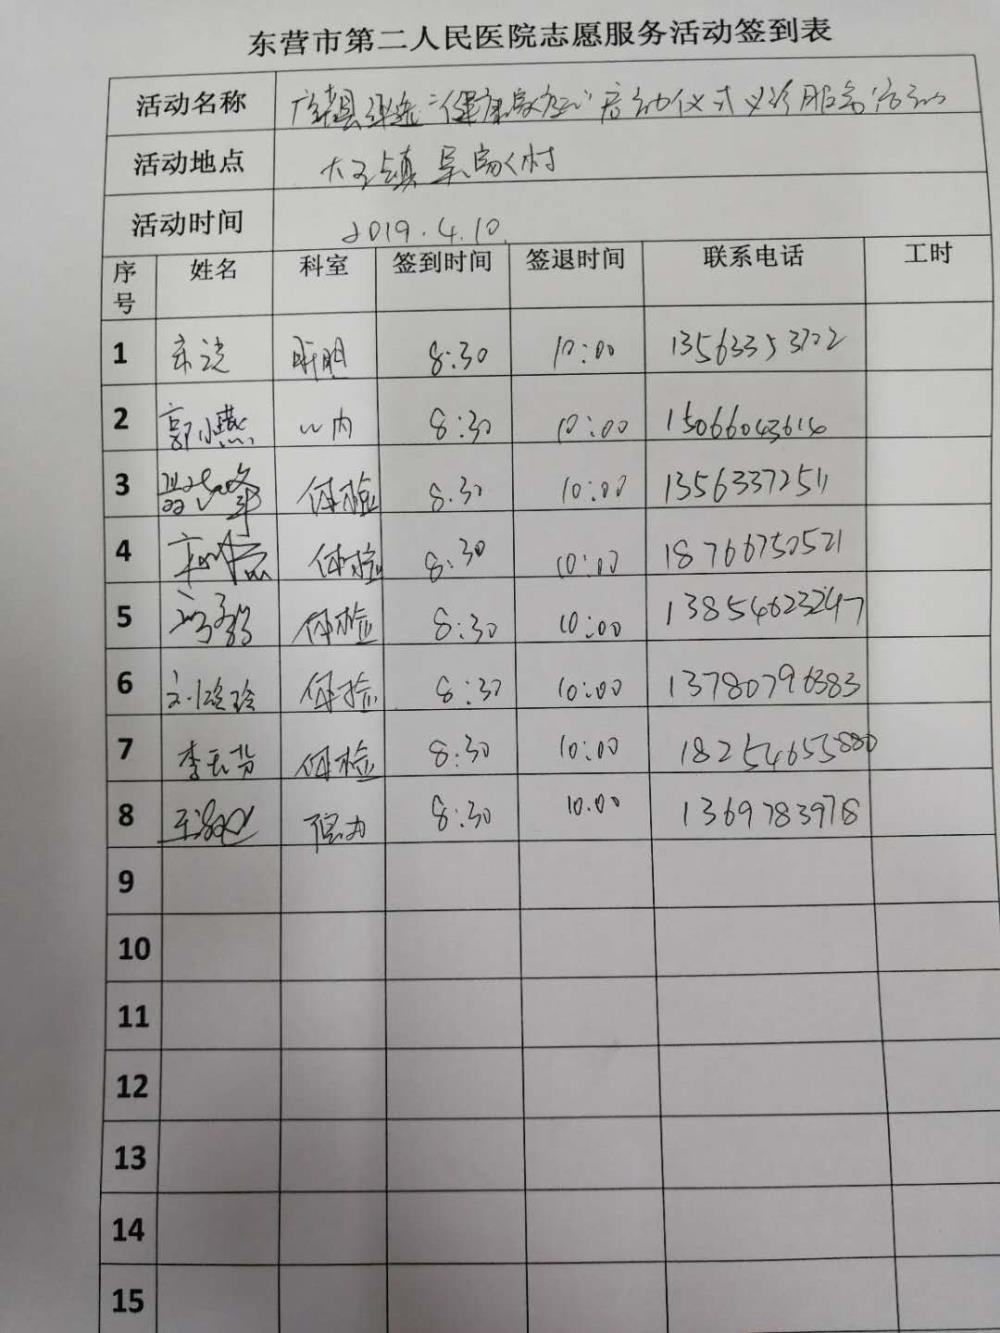 东营市第二人民医院志愿服务活动签到表
活动名称 广饶县 "健康家庭" 启动仪式义诊服务活动
活动地点 大王镇 村
活动时间 2019.4.10.
序号 姓名 科室 签到时间 签退时间 联系电话 工时
1 肝胆 8:30 10:00 13563353722
2 郭小燕 心内 8:30 10:00 15066043614
3 体检 8.30 10:00 13563372511
4 体检 8:30 10:00 18766750521
5 体检 8:30 10:00 13854623247
6 体检 8:30 10:00 13780796383
7 体检 8:30 10:00 18254655880
8 8:30 10.00 1369783978
9
10
11
12
13
14
15